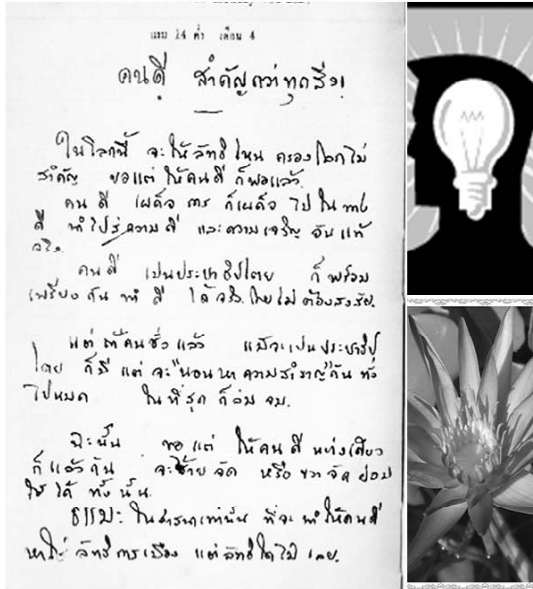 แรม 14 ค่ำ เดือน 4
คนดี สำคัญกว่าทุกสิ่ง!
ในโลกนี้ จะให้ลัทธิไหน ครองโลกไม่
สำคัญ ขอแต่ ให้คนดี ก็พอแล้ว.
คนดี เผด็จการ ก็เผด็จ ไปในทาง
ดี นำไปสู่ความดี และความเจริญ อันแท้
จริง.
คนดี เป็นประชาธิปไตย ก็พร้อม
เพรียงกัน ทำดี ได้จริง โดยไม่ต้องสงสัย.
แต่ถ้าคนชั่วแล้ว แม้จะเป็นประชาธิป
ไตย ก็มีแต่จะ "นอนหาความสำราญ" กัน ทั้ง
ไปหมด ในที่สุด ก็ล่มจม.
ฉะนั้น ขอแต่ ให้คนดี อย่างเดียว
ก็แล้วกัน จะซ้ายจัด หรือ ขวาจัด ย่อม
ใช้ได้ ทั้งนั้น.
ธรรมะ ในศาสนาเท่านั้น ที่จะทำให้คนดี
หาใช่ ลัทธิการเมือง แต่ลัทธิใดไม่ เลย.